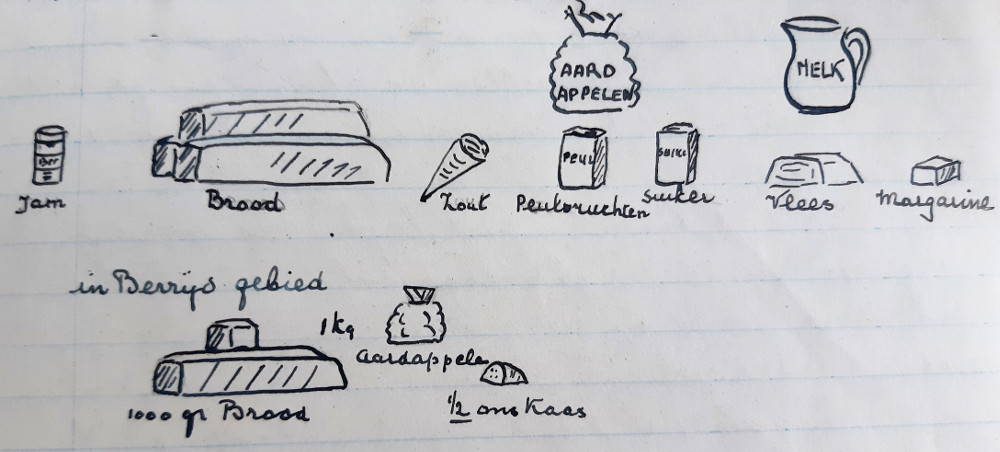 AARD
APPELEN
MELK
PEUL
SUIKE
Jam
Brood
Zout
Peulvruchten
Suiker
Vlees
Margarine
in Berrijs gebied
1 kg
aardappele
1000 gr Brood
1/2 ons Kaas